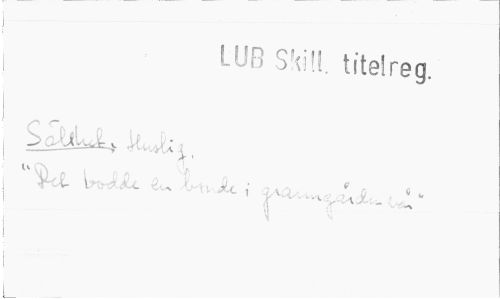 LUB Skill. titelreg.
Sällhet, Huslig.
"Det bodde en bonde i granngården vår"